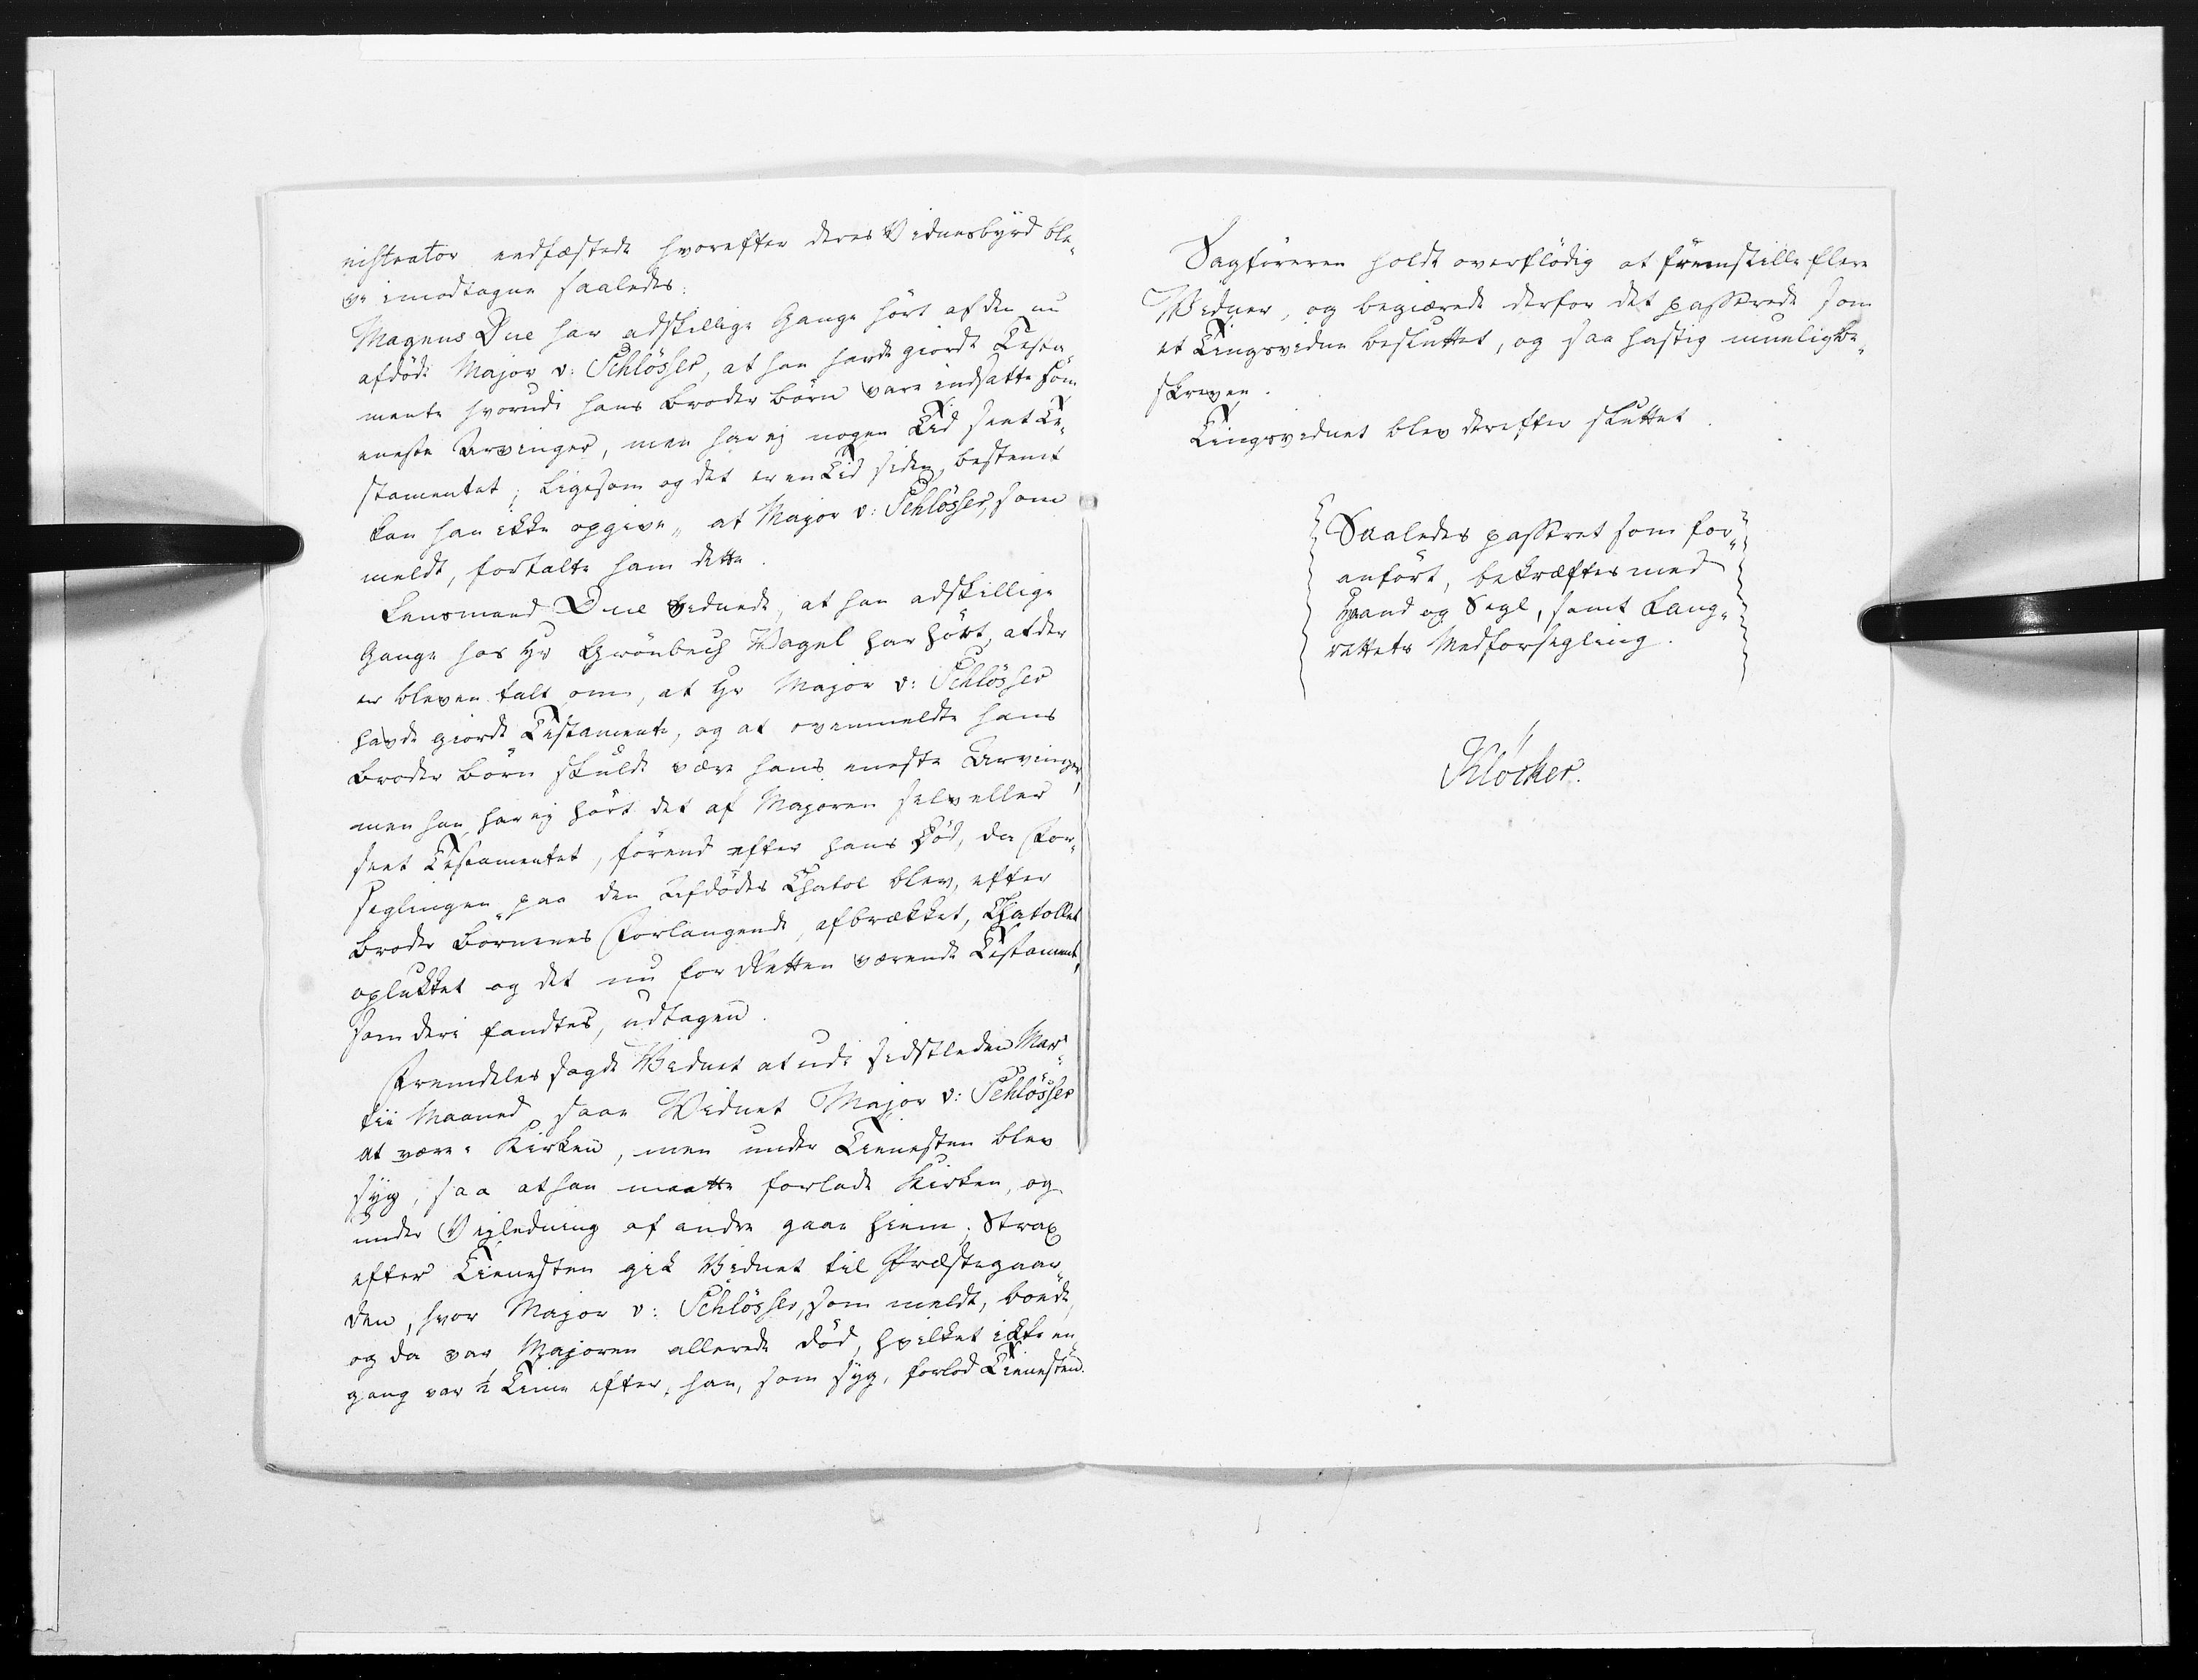 nistrator eedfæstede hvorefter deres Vidnesbyrd ble„
ve imodtagne saaledes:
Magnus Due har adskillige Gange hört af den nu
afdöde Major v: Schlösser, at han havde giordt Testa„
mente hvorudi hans Broder Börn vare indsatte som
eneste Arvinger, men har ej nogen Tid seet Te„
stamentet; Ligesom og det er en Tid siden, bestemt
kan han ikke opgive, at Major v: Schlösser, som
meldt, fortalte ham dette.
Lensmand Due vidnede, at han adskillige
Gange hos Hr Grönbech Wagel har hört, at der
er bleven talt om, at Hr Major v: Schlösser
havde giordt Testamente, og at ovenmeldte hans
Broder Börn skulde være hans eneste Arvinger,
men han har ej hört det af Majoren selv eller
seet Testamentet, förend efter hans Död, da For„
seglingen paa den Afdödes Chatol blev, efter
Broder Bornenes Forlangende, afbrækket, Chatollet
oplukket og det nu for Retten værende Testament,
som deri fandtes, udtagen.
Fremdeles sagde Vidnet at udi sidstleden Mar„
tii Maaned saae Vidnet Major v: Schlösser
at være i Kirken, men under Tienesten blev
syg, saa at han maatte forlade Kirken, og
under Vejledning af andre gaae hiem. Strax
efter Tienesten gik Vidnet til Præstegaar„
den, hvor Major v: Schlösser, som meldt, boede,
og da var Majoren allerede död, hvilket ikke en
gang var ½ Time efter, han, som syg, forlod Tienesten.
Sagföreren holdt overflödig at fremstille flere
Vidner, og begiærede derfor det passerede som
et Tingsvidne besluttet, og saa hastig mueligbe„
skreven.
Tingsvidnet blev derefter sluttet.
Saaledes passeret som for„
anfört, bekræftes med
Haand og Segl, samt Laug„
rettets Medforsegling.
Klöcker.